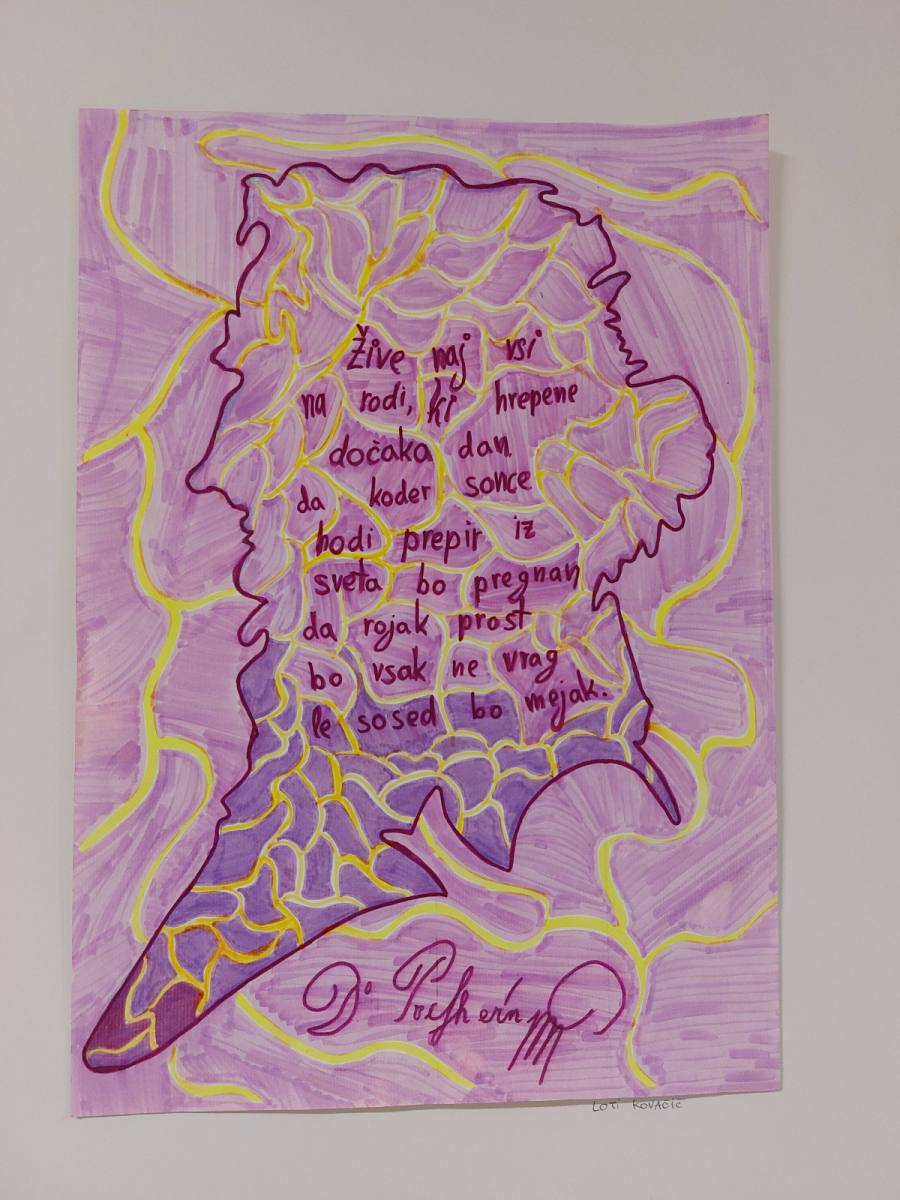 Žive naj vsi
na rodi, ki hrepene
dočaka dan,
da koder sonce
hodi prepir iz
sveta bo pregnan
da rojak prost
bo vsak ne vrag
le sosed bo mejak.
Dr Preshérin
LOTI KOVAČIČ